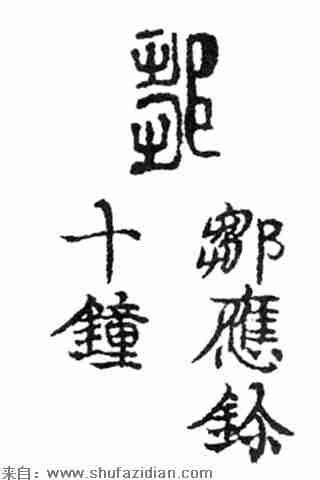 鄒
鄒應鉩
十鐘
来自：www.shufazidian.com